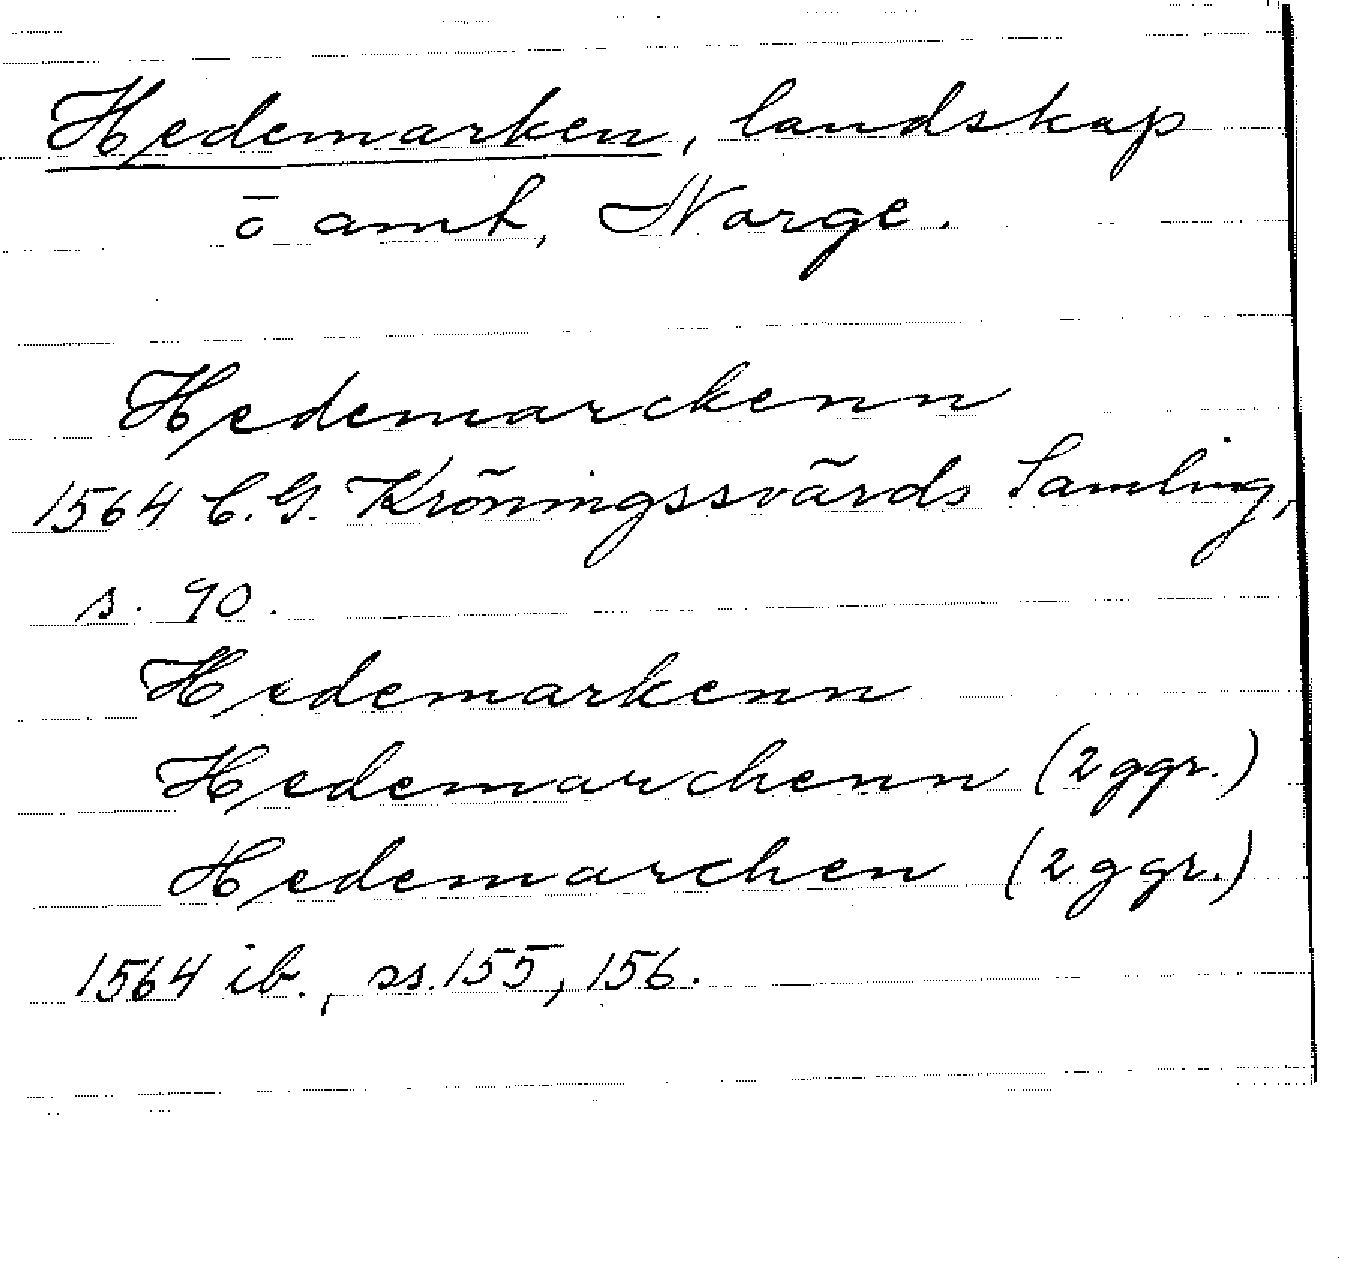 Hedemarken, landskap
ō amt, Norge.
Hedemarckenn
1564 C.G. Kröningssvärds Samling,
s. 90.
Hedemarkenn
Hedemarchenn (2 ggr.)
Hedemarchen (2 ggr.)
1564 ib., ss. 155, 156.